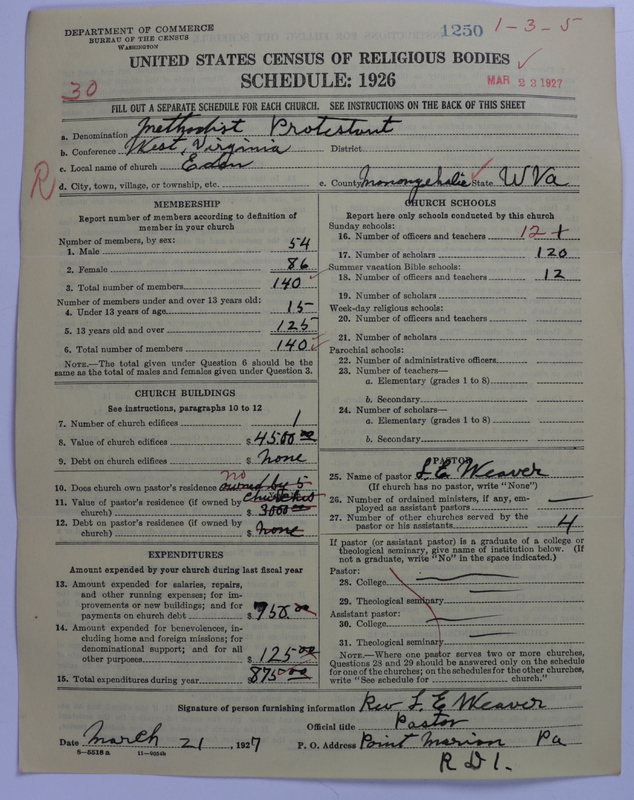 DEPARTMENT OF COMMERCE
BUREAU OF THE CENSUS
WASHINGTON
1250 1-3-5
UNITED STATES CENSUS OF RELIGIOUS BODIES
SCHEDULE: 1926
MAR 23 1927
30
FILL OUT A SEPARATE SCHEDULE FOR EACH CHURCH. SEE INSTRUCTIONS ON THE BACK OF THIS SHEET
a. Denomination Methodist Protestant
b. Conference West, Virginia District
c. Local name of church Eden
R
d. City, town, village, or township, etc. e. County Monongehalie State W Va
MEMBERSHIP
Report number of members according to definition of
member in your church
Number of members, by sex:
1. Male 54
2. Female 86
3. Total number of members 140
Number of members under and over 13 years old:
4. Under 13 years of age 15
5. 13 years old and over 125
6. Total number of members 140
NOTE.—The total given under Question 6 should be the
same as the total of males and females given under Question 3.
CHURCH BUILDINGS
See instructions, paragraphs 10 to 12
7. Number of church edifices 1
8. Value of church edifices $ 4500 00
9. Debt on church edifices $ none
10. Does church own pastor's residence no owned by 5
11. Value of pastor's residence (if owned by churches
church) $ 3000 00
12. Debt on pastor's residence (if owned by
church) $ none
EXPENDITURES
Amount expended by your church during last fiscal year
13. Amount expended for salaries, repairs,
and other running expenses; for im-
provements or new buildings; and for
payments on church debt $ 750.00
14. Amount expended for benevolences, in-
cluding home and foreign missions; for
denominational support; and for all
other purposes $ 125 00
15. Total expenditures during year 875 00
CHURCH SCHOOLS
Report here only schools conducted by this church
Sunday schools:
16. Number of officers and teachers 12 1
17. Number of scholars 120
Summer vacation Bible schools:
18. Number of officers and teachers 12
19. Number of scholars
Week-day religious schools:
20. Number of officers and teachers
21. Number of scholars
Parochial schools:
22. Number of administrative officers
23. Number of teachers—
a. Elementary (grades 1 to 8)
b. Secondary
24. Number of scholars—
a. Elementary (grades 1 to 8)
b. Secondary
PASTOR
25. Name of pastor L. E. Weaver
(If church has no pastor, write "None")
26. Number of ordained ministers, if any, em-
ployed as assistant pastors —
27. Number of other churches served by the
pastor or his assistants 4
If pastor (or assistant pastor) is a graduate of a college or
theological seminary, give name of institution below. (If
not a graduate, write "No" in the space indicated.)
Pastor:
28. College
29. Theological seminary
Assistant pastor:
30. College
31. Theological seminary
NOTE.—Where one pastor serves two or more churches,
Questions 28 and 29 should be answered only on the schedule
for one of the churches; on the schedules for the other churches,
write "See schedule for church."
Signature of person furnishing information Rev L. E Weaver
Official title Pastor
Date March 21, 1927 P. O. Address Point Marion Pa
8—5518 a 11—9554b
R D 1.